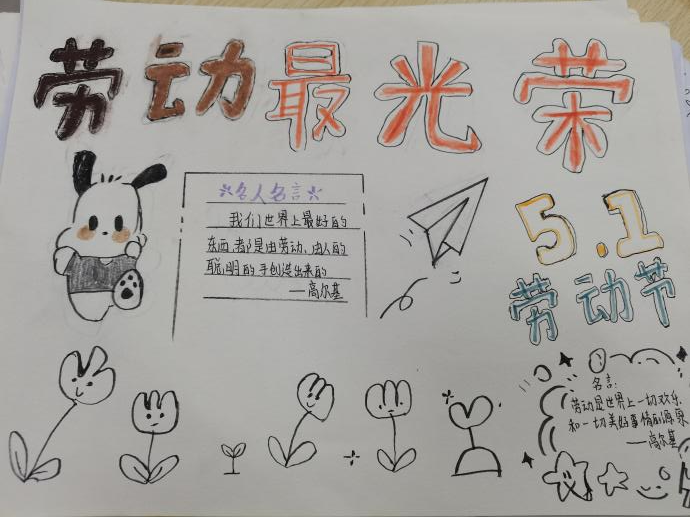 劳动最光荣
名人名言
我们世界上最好的
东西,都是由劳动、由人的
聪明的手创造出来的
——高尔基
5.1
劳动节
名言:
劳动是世界上一切欢乐
和一切美好事情的源泉
——高尔基